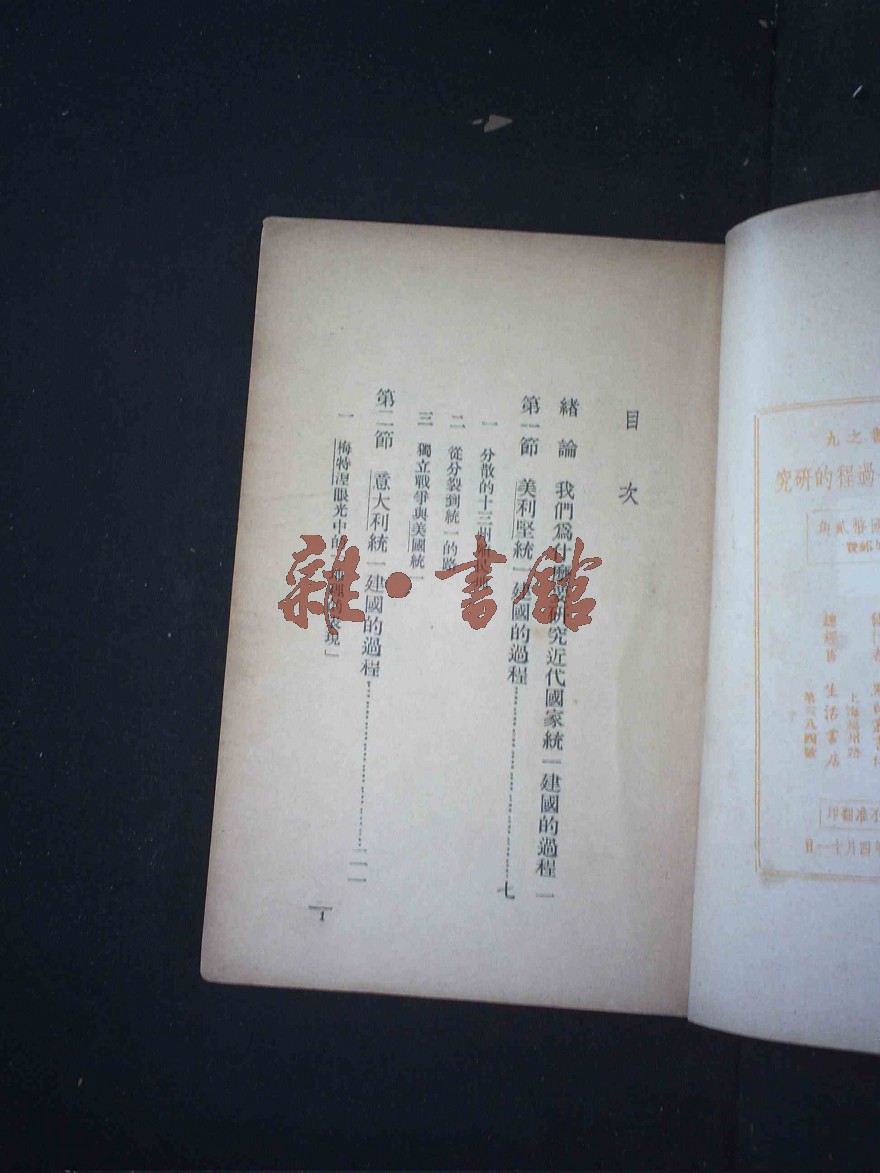 目次
緒論 我們爲什麼要研究近代國家統一建國的過程 一
第一節 美利堅統一建國的過程 七
一 分散的十三州殖民地
二 從分裂到統一的路
三 獨立戰爭與美國統一
第二節 意大利統一建國的過程 二一
一 梅特涅眼光中的「地理的表現」
1
雜·書館
之九
過程的研究
國幣貳角
生活書店
上海福州路
第三八四號
不准翻印
年四月十一日